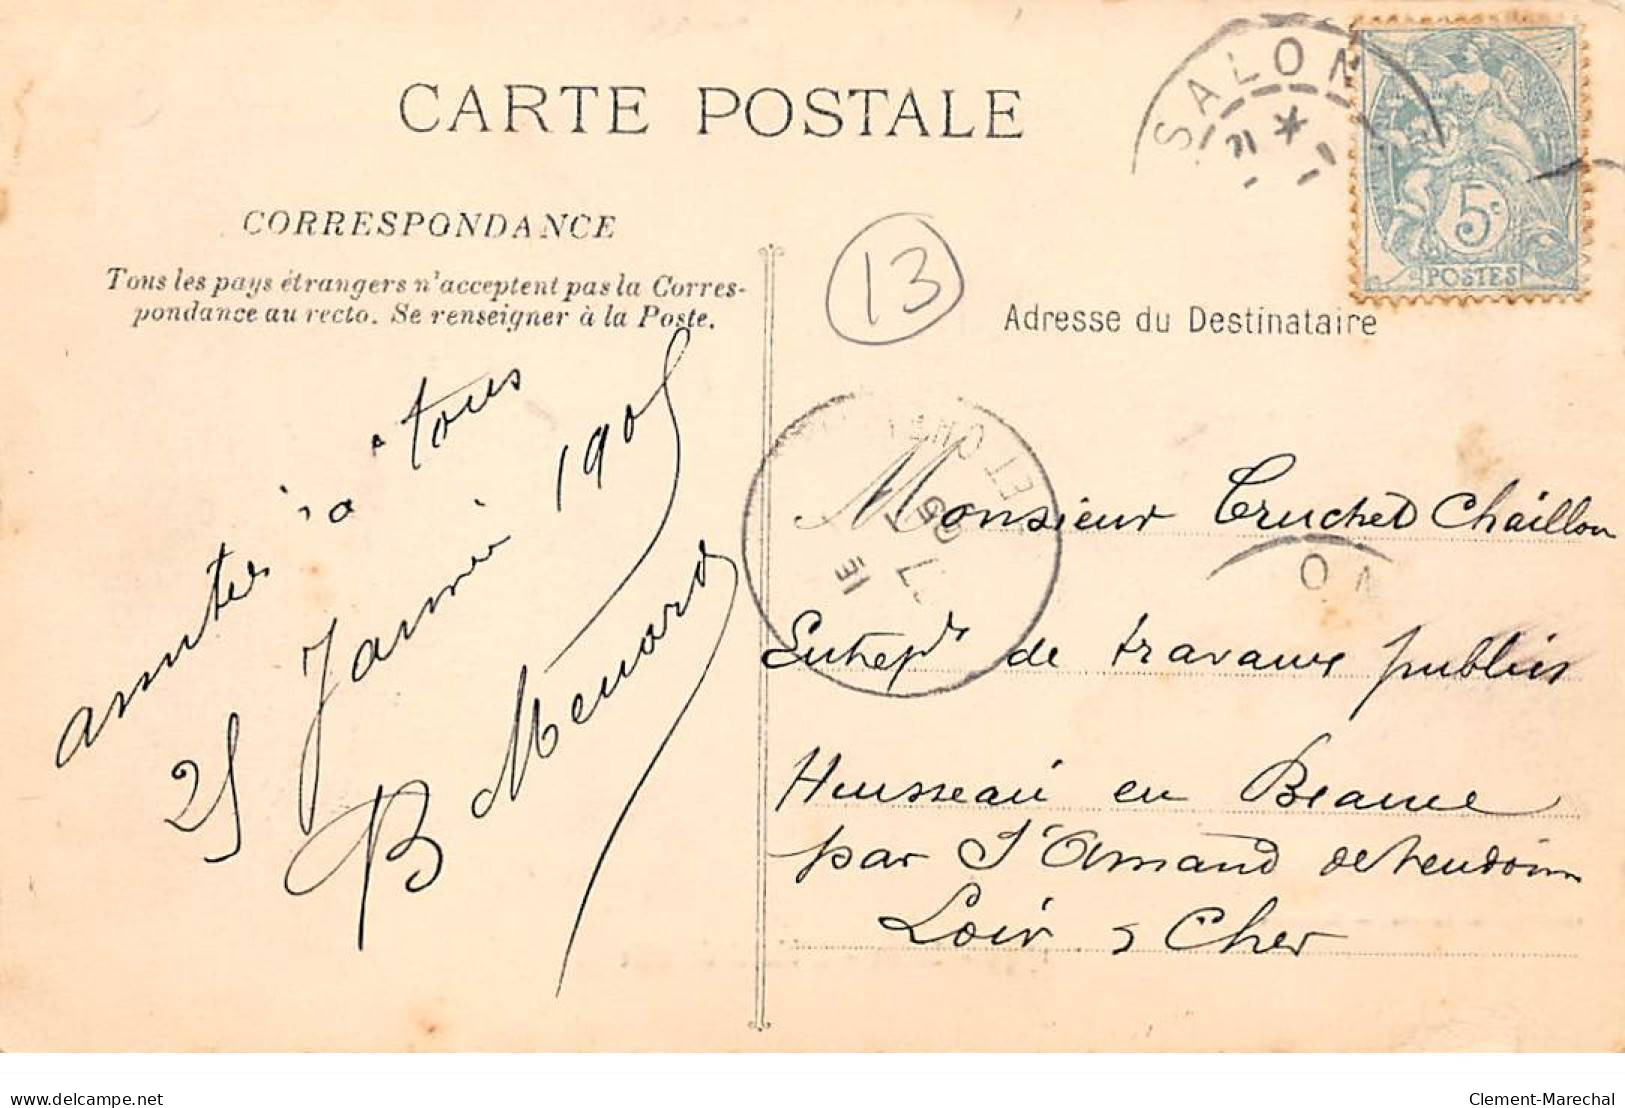 CARTE POSTALE
SALON
5c
POSTES
CORRESPONDANCE
Tous les pays étrangers n'acceptent pas la Corres-
pondance au recto. Se renseigner à la Poste.
13
Adresse du Destinataire
amitiés à tous
25 Janvier 1905
B Menard
ET CHER
Monsieur Truchet Chaillou
Entrepr de travaux publics
Huisseau en Beauce
par St Amand de Vendôme
Loir & Cher
delcampe.net
Clement-Marechal